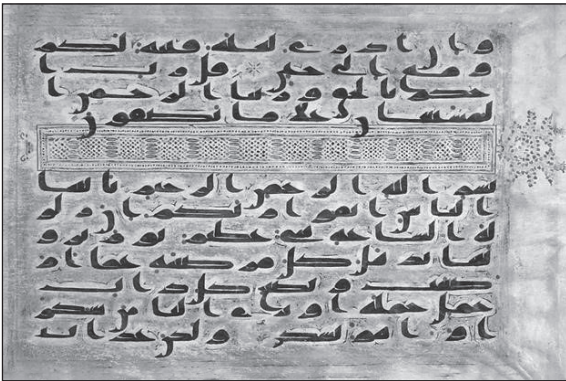 وان ادرى لعله فتنة لكم
ومتع الى حين قل رب ا
حكم بالحق وربنا الرحمن ا
لمستعان على ما تصفون
بسم الله الرحمن الرحيم يايها
الناس اتقوا ربكم ان زلز
لة الساعة شى عظيم يوم ترو
نها تذهل كل مرضعة عما ا
رضعت وتضع كل ذات
حمل حملها وترى الناس سكر
ى وما هم بسكرى ولكن عذاب